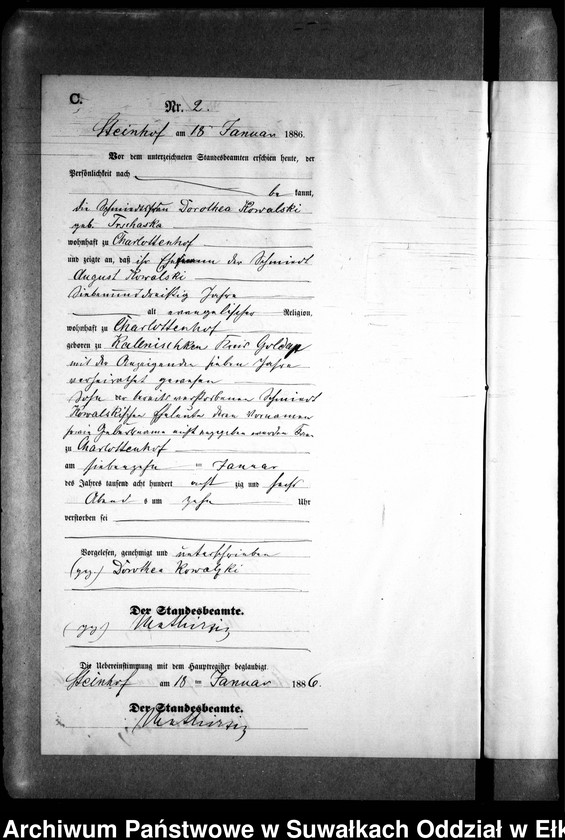 C.
Nr. 2.
Steinhof am 18 Januar 1886.
Vor dem unterzeichneten Standesbeamten erschien heute, der
Persönlichkeit nach
be kannt,
die Schmiedtsfrau Dorothea Kowalski
geb.
wohnhaft zu Charlottenhof
und zeigte an, daß ihr Ehemann der Schmiedt
August Kowalski
Siebenunddreißig Jahre
alt evangelischer Religion,
wohnhaft zu Charlottenhof
geboren zu Kallnischken Kreis Goldap
mit der Anzeigenden sieben Jahre
verheirathet gewesen
Sohn der bereits verstorbenen Schmiedt
Kowalskischen Eheleute deren Vornamen
sowie Geburtsname nicht angegeben werden
zu Charlottenhof
am siebenzehn ten Januar
des Jahres tausend acht hundert acht zig und sechs
Abend s um zehn Uhr
verstorben sei
Vorgelesen, genehmigt und unterschrieben
(gez.) Dorothea Kowalzki
Der Standesbeamte.
(gez)
Die Uebereinstimmung mit dem Hauptregister beglaubigt
Steinhof am 18 ten Januar 1886.
Der Standesbeamte.
Archiwum Państwowe w Suwałkach Oddział w Ełk